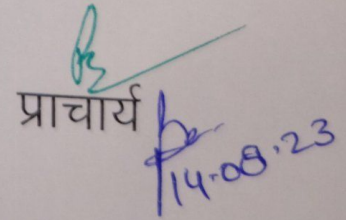 प्राचार्य
14.08.23